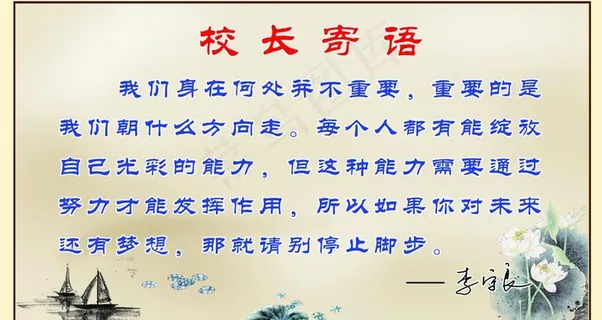 校长寄语
我们身在何处并不重要，重要的是
我们朝什么方向走。每个人都有能绽放
自己光彩的能力，但这种能力需要通过
努力才能发挥作用，所以如果你对未来
还有梦想，那就请别停止脚步。
——李守良